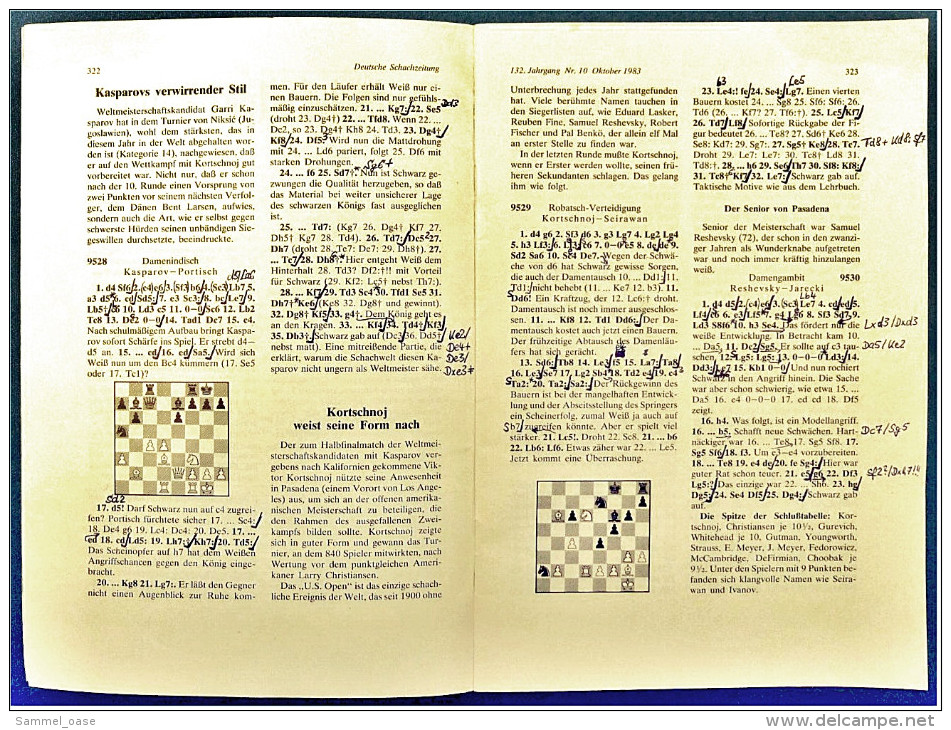 322
Deutsche Schachzeitung
Kasparovs verwirrender Stil
Weltmeisterschaftskandidat Garri Ka-
sparov hat in dem Turnier von Nikšić (Ju-
goslawien), wohl dem stärksten, das in
diesem Jahr in der Welt abgehalten wor-
den ist (Kategorie 14), nachgewiesen, daß
er auf den Wettkampf mit Kortschnoj gut
vorbereitet war. Nicht nur, daß er schon
nach der 10. Runde einen Vorsprung von
zwei Punkten vor seinem nächsten Verfol-
ger, dem Dänen Bent Larsen, aufwies,
sondern auch die Art, wie er selbst gegen
schwerste Hürden seinen unbändigen Sie-
geswillen durchsetzte, beeindruckte.
9528 Damenindisch
Kasparov–Portisch
a3 d5 6. cd Sd5: 7. e3 Sc3: 8. bc Le7 9.
Lb5† c6 10. Ld3 c5 11. 0–0 Sc6 12. Lb2
Tc8 13. De2 0–0 14. Tad1 Dc7 15. c4.
Nach schulmäßigem Aufbau bringt Kaspa-
rov sofort Schärfe ins Spiel. Er strebt d4–
d5 an. 15. ... cd 16. ed Sa5. Wird sich
Weiß nun um den Bc4 kümmern (17. Se5
oder 17. Tc1)?
17. d5! Darf Schwarz nun auf c4 zugrei-
fen? Portisch fürchtete sicher 17. ... Sc4:
18. De4 g6 19. Lc4: Dc4: 20. De5. 17. ...
ed 18. cd Ld5: 19. Lh7:† Kh7: 20. Td5:
Das Scheinopfer auf h7 hat dem Weißen
Angriffschancen gegen den König einge-
bracht.
20. ... Kg8 21. Lg7:. Er läßt den Gegner
nicht einen Augenblick zur Ruhe kom-
men. Für den Läufer erhält Weiß nur ei-
nen Bauern. Die Folgen sind nur gefühls-
mäßig einzuschätzen. 21. ... Kg7: 22. Se5
(droht 23. Dg4†) 22. ... Tfd8. Wenn 22. ...
Dc2, so 23. Dg4† Kh8 24. Td3. 23. Dg4†
Kf8 24. Df5. Wird nun die Mattdrohung
mit 24. ... Ld6 pariert, folgt 25. Df6 mit
starken Drohungen.
24. ... f6 25. Sd7†. Nun ist Schwarz ge-
zwungen die Qualität herzugeben, so daß
das Material bei weiter unsicherer Lage
des schwarzen Königs fast ausgeglichen
ist.
25. ... Td7: (Kg7 26. Dg4† Kf7 27.
Dh5† Kg7 28. Td4). 26. Td7: De5 27.
Dh7 (droht 28. Te7: De7: 29. Dh8†). 27.
... Tc7 28. Dh8†. Hier entgeht Weiß dem
Hinterhalt 28. Td3? Df2:†!! mit Vorteil
für Schwarz (29. Kf2: Lc5† nebst Th7:).
28. ... Kf7 29. Td3 Sc4 30. Tfd1 Se5 31.
Dh7† Ke6 (Ke8 32. Dg8† und gewinnt).
32. Dg8† Kf5 33. g4†. Dem König geht es
an den Kragen. 33. ... Kf4 34. Td4† Kf3
35. Db3†. Schwarz gab auf (Dc3 36. Dd5†
nebst matt). Eine mitreißende Partie, die
erklärt, warum die Schachwelt diesen Ka-
sparov nicht ungern als Weltmeister sähe.
Kortschnoj
weist seine Form nach
Der zum Halbfinalmatch der Weltmei-
sterschaftskandidaten mit Kasparov ver-
gebens nach Kalifornien gekommene Vik-
tor Kortschnoj nützte seine Anwesenheit
in Pasadena (einem Vorort von Los Ange-
les) aus, um sich an der offenen amerika-
nischen Meisterschaft zu beteiligen, die
den Rahmen des ausgefallenen Zwei-
kampfs bilden sollte. Kortschnoj zeigte
sich in guter Form und gewann das Tur-
nier, an dem 840 Spieler mitwirkten, nach
Wertung vor dem punktgleichen Ameri-
kaner Larry Christiansen.
Das „U.S. Open“ ist das einzige schach-
liche Ereignis der Welt, das seit 1900 ohne
132. Jahrgang Nr. 10 Oktober 1983
323
Unterbrechung jedes Jahr stattgefunden
hat. Viele berühmte Namen tauchen in
den Siegerlisten auf, wie Eduard Lasker,
Reuben Fine, Samuel Reshevsky, Robert
Fischer und Pal Benkö, der allein elf Mal
an erster Stelle zu finden war.
In der letzten Runde mußte Kortschnoj,
wenn er Erster werden wollte, seinen frü-
heren Sekundanten schlagen. Das gelang
ihm wie folgt.
9529 Robatsch-Verteidigung
Kortschnoj–Seirawan
1. d4 g6 2. Sf3 d6 3. g3 Lg7 4. Lg2 Lg4
5. h3 Lf3: 6. Lf3: c6 7. 0–0 e5 8. de de 9.
Sd2 Sa6 10. Sc4 De7. Wegen der Schwä-
che von d6 hat Schwarz gewisse Sorgen,
die auch der Damentausch 10. ... Dd1: 11.
Td1: nicht behebt (11. ... Ke7 12. b3). 11.
Dd6! Ein Kraftzug, der 12. Lc6:† droht.
Damentausch ist noch immer ausgeschlos-
sen. 11. ... Kf8 12. Td1 Dd6: Der Da-
mentausch kostet auch jetzt einen Bauern.
Der frühzeitige Abtausch des Damenläu-
fers hat sich gerächt.
13. Sd6: Tb8 14. Le3 f5 15. La7: Ta8
16. Le3 Se7 17. Lg2 Sb4 18. Td2 e4 19. c3
Ta2: 20. Ta2: Sa2: Der Rückgewinn des
Bauern ist bei der mangelhaften Entwick-
lung und der Abseitsstellung des Springers
ein Scheinerfolg, zumal Weiß ja auch auf
b7 zugreifen könnte. Aber er spielt viel
stärker. 21. Lc5!. Droht 22. Sc8. 21. ... b6
22. Lb6: Lf6. Etwas zäher war 22. ... Le5.
Jetzt kommt eine Überraschung.
23. Le4:! fe 24. Se4: Lg7. Einen vierten
Bauern kostet 24. ... Sg8 25. Sf6: Sf6: 26.
Td6 (26. ... Kf7? 27. Tf6:†). 25. Lc5 Kf7
26. Td7 Lf8. Sofortige Rückgabe der Fi-
gur bedeutet 26. ... Te8? 27. Sd6† Ke6 28.
Se8: Kd7: 29. Sg7:. 27. Sg5† Ke8 28. Tc7.
Droht 29. Le7: Le7: 30. Tc8† Ld8 31.
Td8:†. 28. ... h6 29. Se6 Th7 30. Sf8: Kf8:
31. Tc8† Kf7 32. Le7: Schwarz gab auf.
Taktische Motive wie aus dem Lehrbuch.
Der Senior von Pasadena
Senior der Meisterschaft war Samuel
Reshevsky (72), der schon in den zwanzi-
ger Jahren als Wunderknabe aufgetreten
war und noch immer kräftig hinzulangen
weiß.
Damengambit 9530
Reshevsky–Jarecki
Ld3 S8f6 10. h3 Se4. Das fordert nur die
weiße Entwicklung. In Betracht kam 10.
... Da5. 11. De2 Sg5. Er sollte auf c3 tau-
schen. 12. Lg5: Lg5: 13. 0–0–0 Ld3: 14.
Dd3: Le7 15. Kb1 0–0 Und nun rochiert
Schwarz in den Angriff hinein. Die Sache
war aber schon schwierig, wie etwa 15. ...
Da5 16. e4 0–0–0 17. ed cd 18. Df5
zeigt.
16. h4. Was folgt, ist ein Modellangriff.
16. ... h5. Schafft neue Schwächen. Hart-
näckiger war 16. ... Te8 17. Sg5 Sf8. 17.
Sg5 Sf6 18. f3. Um e3–e4 vorzubereiten.
18. ... Te8 19. e4 de 20. fe Sg4: Hier war
guter Rat schon teuer. 21. e5 g6 22. Df3
Lg5:? Das einzige war 22. ... Sh6. 23. hg
Dg5: 24. Se4 Df5 25. Dg4: Schwarz gab
auf.
Die Spitze der Schlußtabelle: Kor-
tschnoj, Christiansen je 10½, Gurevich,
Whitehead je 10, Gutman, Youngworth,
Strauss, E. Meyer, J. Meyer, Fedorowicz,
McCambridge, DeFirmian, Choobak je
9½. Unter den Spielern mit 9 Punkten be-
fanden sich klangvolle Namen wie Seira-
wan und Ivanov.
Sammel_oase
www.delcampe.net